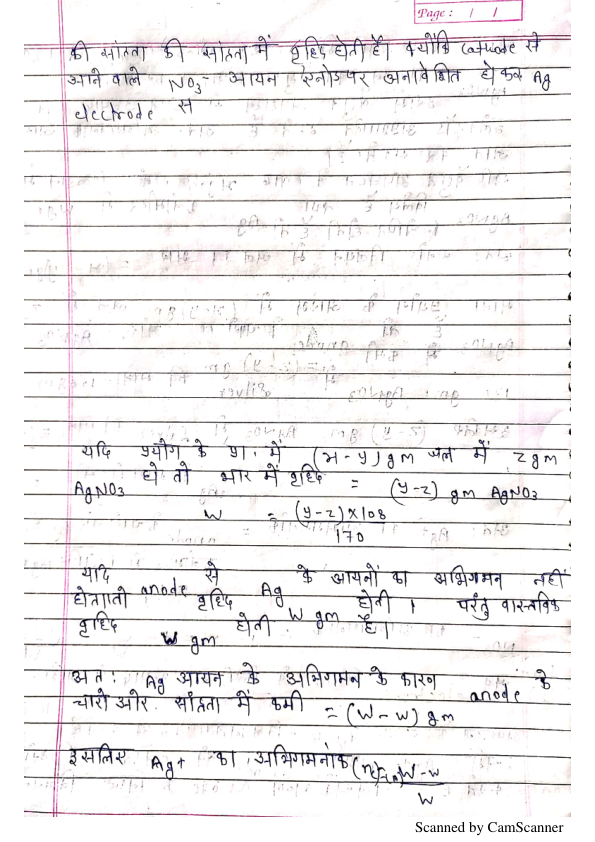 Page: / /
की सांद्रता की सांद्रता में वृद्धि होती है। क्योंकि cathode से
आने वाले NO3- आयन एनोड पर अनावेशित होकर Ag
electrode से
यदि प्रयोग के प्रा. में (x-y) gm जल में z gm
AgNO3 हो तो भार में वृद्धि = (y-z) gm AgNO3
W = (y-z)×108
170
यदि anode से Ag के आयनों का अभिगमन नहीं
होता तो वृद्धि W gm होती । परंतु वास्तविक
वृद्धि w gm होती है।
अतः Ag आयन के अभिगमन के कारण anode के
चारो ओर सांद्रता में कमी = (W-w) gm
इसलिए Ag+ का अभिगमनांक W-w
W
Scanned by CamScanner